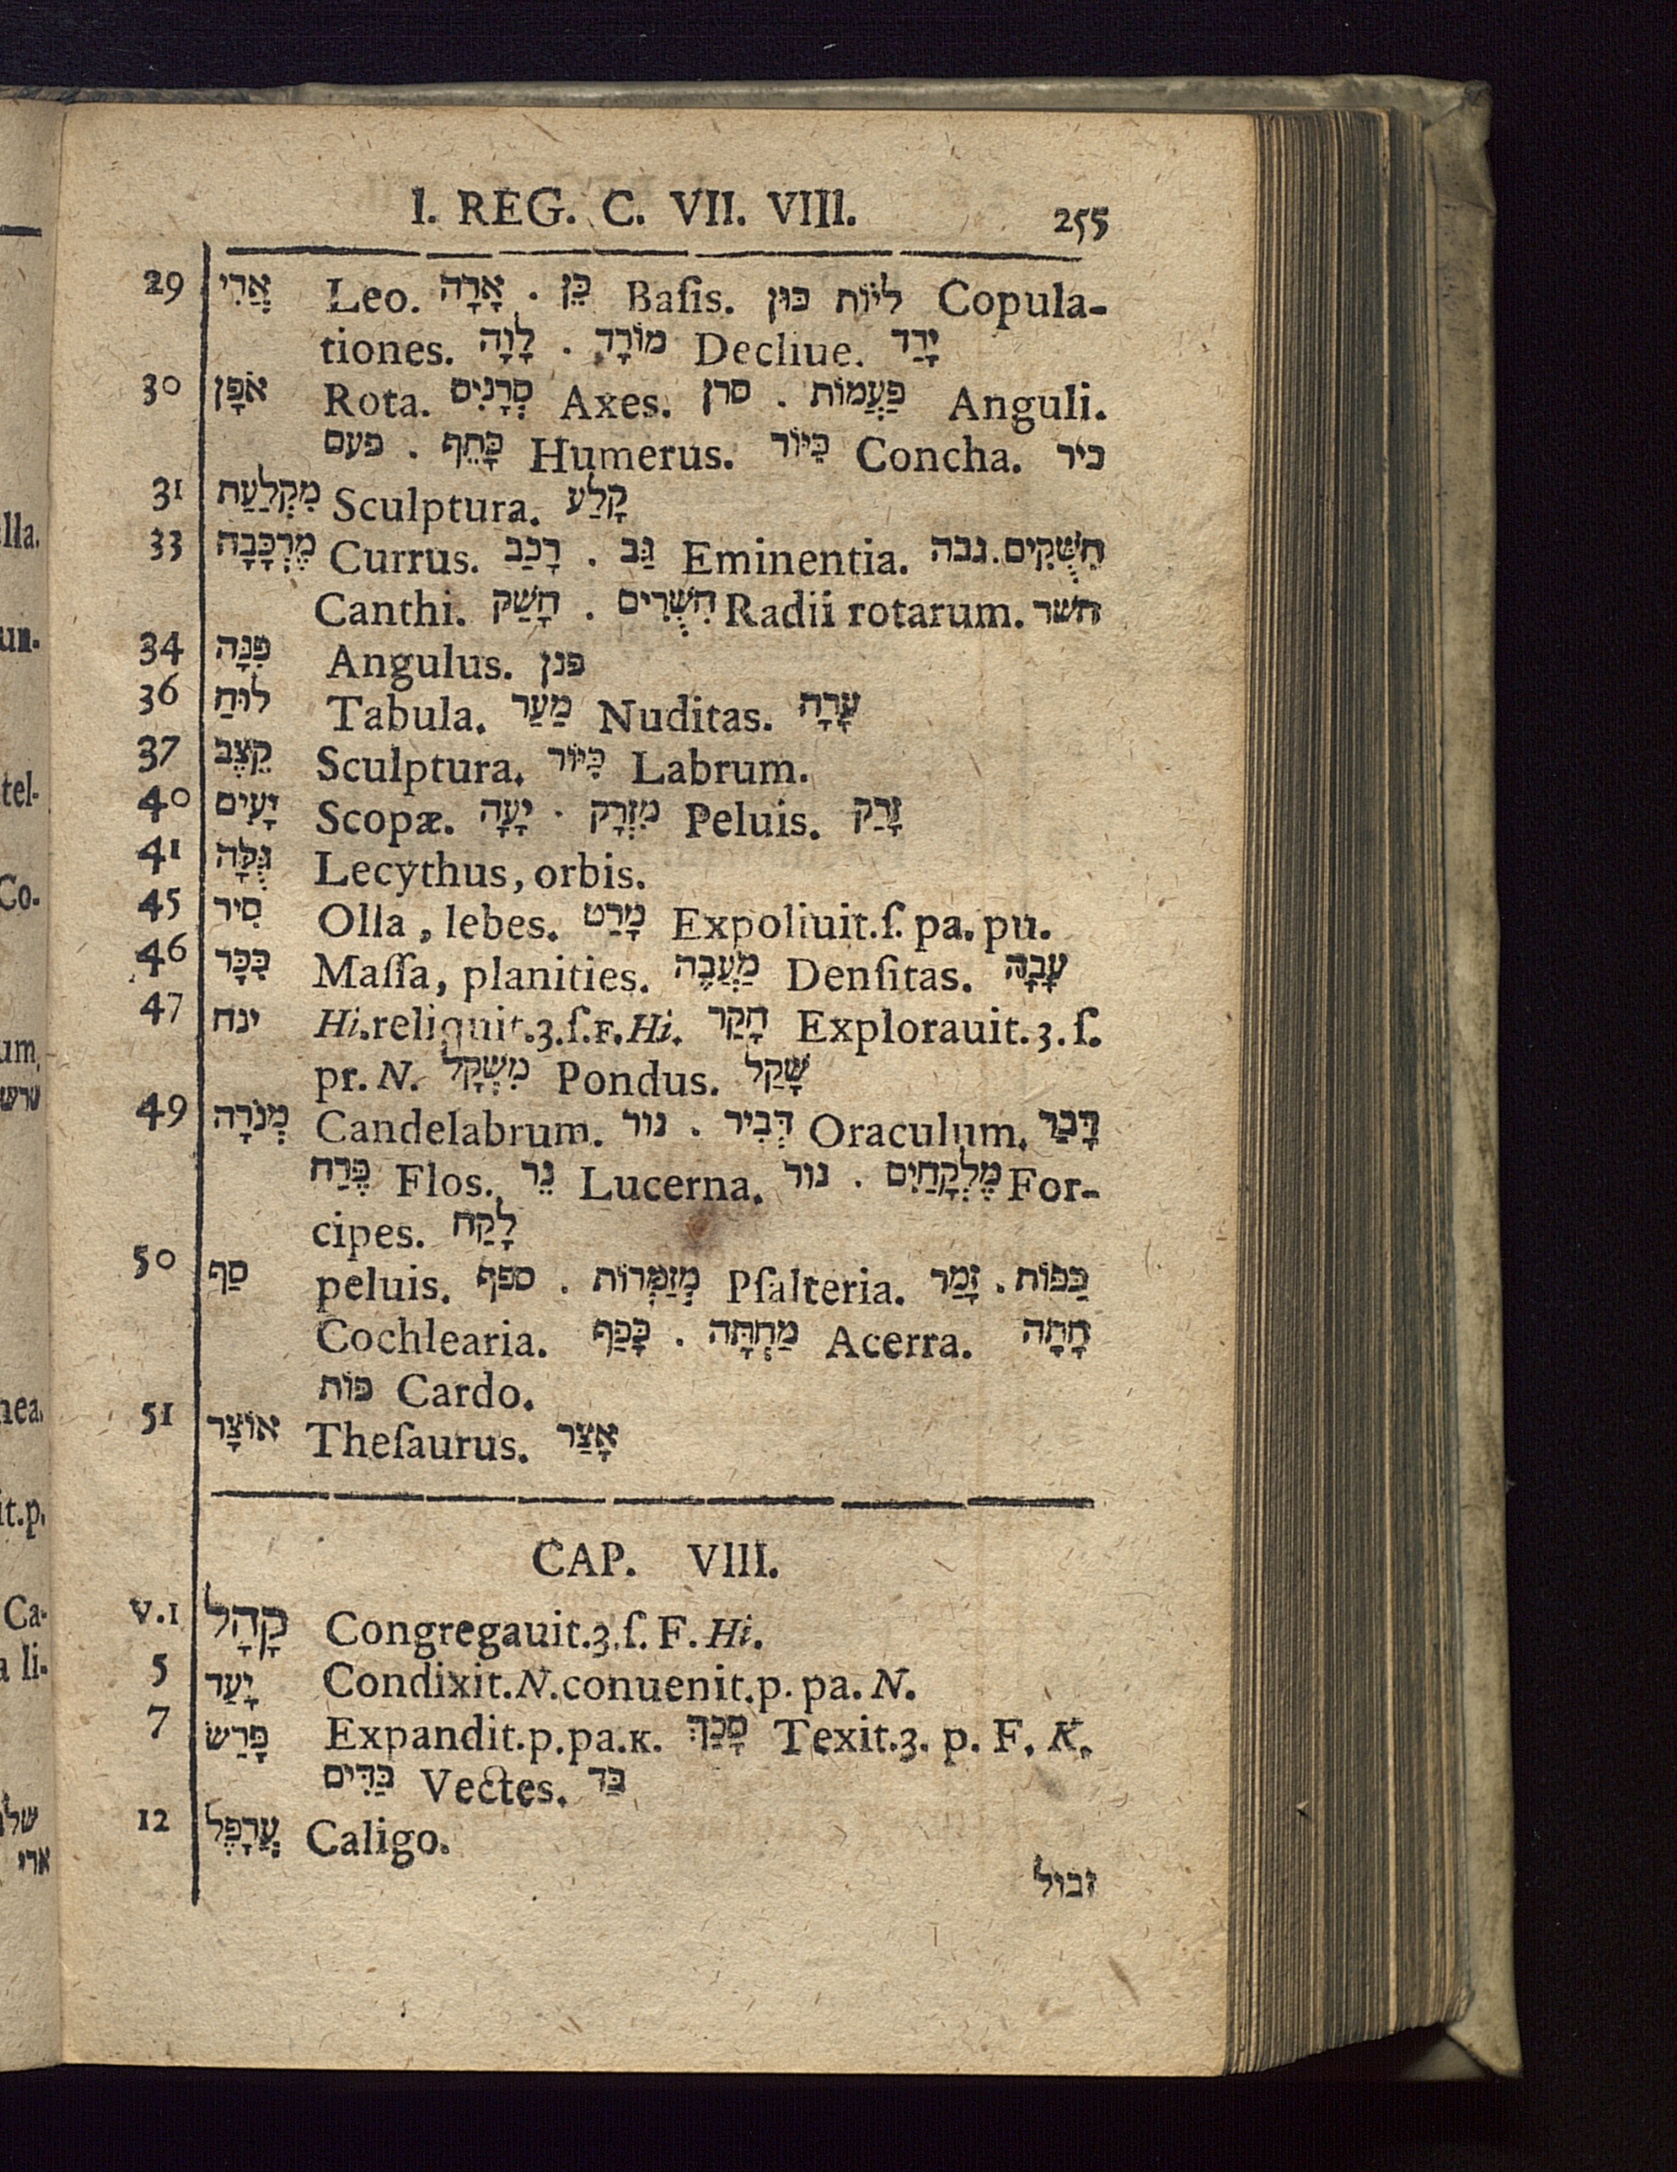 I. REG. C. VII. VIII. 255
29 אֲרִי Leo. אָרָה . כֵּן Baſis. כּוּן לֹיוֹת Copula-
tiones. לָוָה . מוֹרָד Decliue. יָרַד
30 אֹפָן Rota. סְרָנִים Axes. סרן . פַּעֲמוֹת Anguli.
פעם . כָּתֵף Humerus. כִּיּוֹר Concha. כיר
31 מִקְלַעַת Sculptura. קָלַע
33 מֶרְכָּבָה Currus. רָכַב . גַּב Eminentia. גבה . חִשֻּׁקִים
Canthi. חָשַׁק . חִשֻּׁרִים Radii rotarum. חשר
34 פִּנָּה Angulus. פנן
36 לוּחַ Tabula. מַעַר Nuditas. עָרָה
37 קֵצֶב Sculptura. כִּיּוֹר Labrum.
40 יָעִים Scopæ. יָעָה . מִזְרָק Peluis. זָרַק
41 גֻּלָּה Lecythus, orbis.
45 סִיר Olla, lebes. מָרַט Expoliuit.ſ. pa. pu.
46 כִּכָּר Maſſa, planities. מַעֲבֶה Denſitas. עָבָה
47 ינח Hi.reliquit.3.ſ.F.Hi. חָקַר Explorauit.3.ſ.
pr. N. מִשְׁקָל Pondus. שָׁקַל
49 מְנֹרָה Candelabrum. נור . דְּבִיר Oraculum. דָּבַר
פֶּרַח Flos. נֵר Lucerna. נור . מֶלְקָחַיִם For-
cipes. לָקַח
50 סַף peluis. ספף . מְזַמְּרוֹת Pſalteria. זָמַר . כַּפּוֹת
Cochlearia. כָּפַף . מַחְתָּה Acerra. חָתָה
פּוֹת Cardo.
51 אוֹצָר Theſaurus. אָצַר
CAP. VIII.
V.1 קָהָל Congregauit.3.ſ. F. Hi.
5 יָעַד Condixit.N.conuenit.p. pa. N.
7 פָּרַשׂ Expandit.p.pa.K. סָכַךְ Texit.3. p. F. K.
בַּדִּים Vectes. בַּד
12 עֲרָפֶל Caligo.
זבול